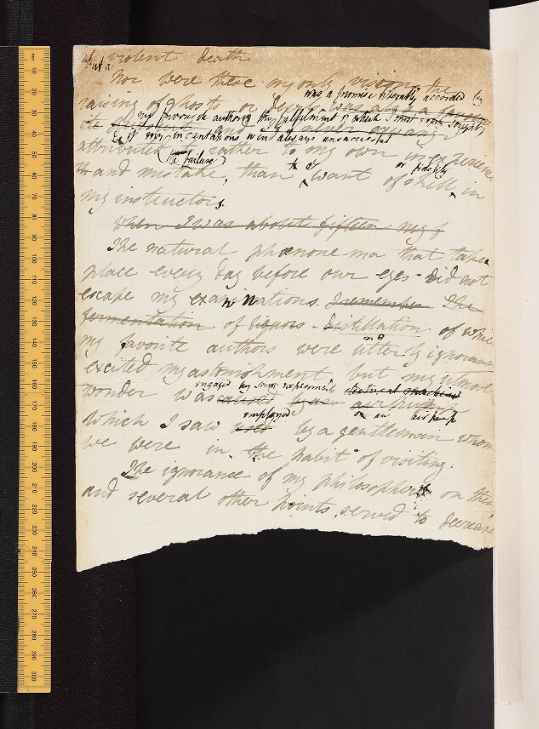 violent death.
Nor were these my only visions the
was a promise liberally accorded by
raising of ghosts or devils was also a
my favourite authors the fulfilment of which I most eagerly
if my incantations were always unsuccessful
attributed it rather to my own inexperience
(the failure) to a or fidelity
and mistake, than want of skill in
my instructors
When I was about fifteen my
The natural phœnomena that take
place every day before our eyes did not
escape my examinations. I remember The
fermentation of liquors - distillation of which
my favorite authors were utterly ignorant
excited my astonishment but my utmost
engaged by some experiments
wonder was caused by an air pump
employed on an air pump
which I saw used by a gentleman whom
we were in the habit of visiting.
The ignorance of my philosophers on this
and several other points served to decrease